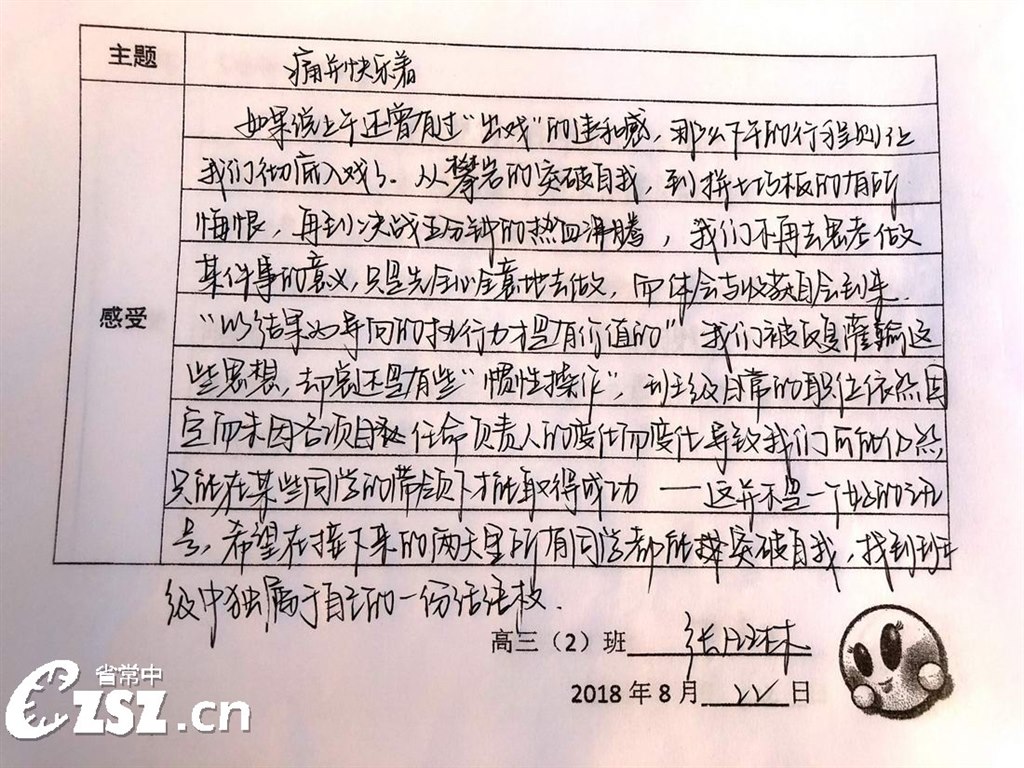 主题 痛并快乐着
如果说上午还曾有过“出戏”的违和感,那么下午的行程则让
我们彻底入戏了.从攀岩的突破自我,到拼七巧板的有所
悔恨,再到决战五分钟的热血沸腾,我们不再去思考做
某件事的意义,只是先全心全意地去做,而体会与收获自会到来.
感受
“以结果为导向的执行力才是有价值的”我们被反复灌输这
些思想,却离还是有些“惯性操作”,到班级日常的职位依然固
定而未因各项目任命负责人的变化而变化导致我们所能仍然
只能在某些同学的带领下才能取得成功——这并不是一个好的讯
号,希望在接下来的两天里所有同学都能突破自我,找到班
级中独属于自己的一份话语权.
高三(2)班 张
2018年8月22日
省常中
CZSZ.cn